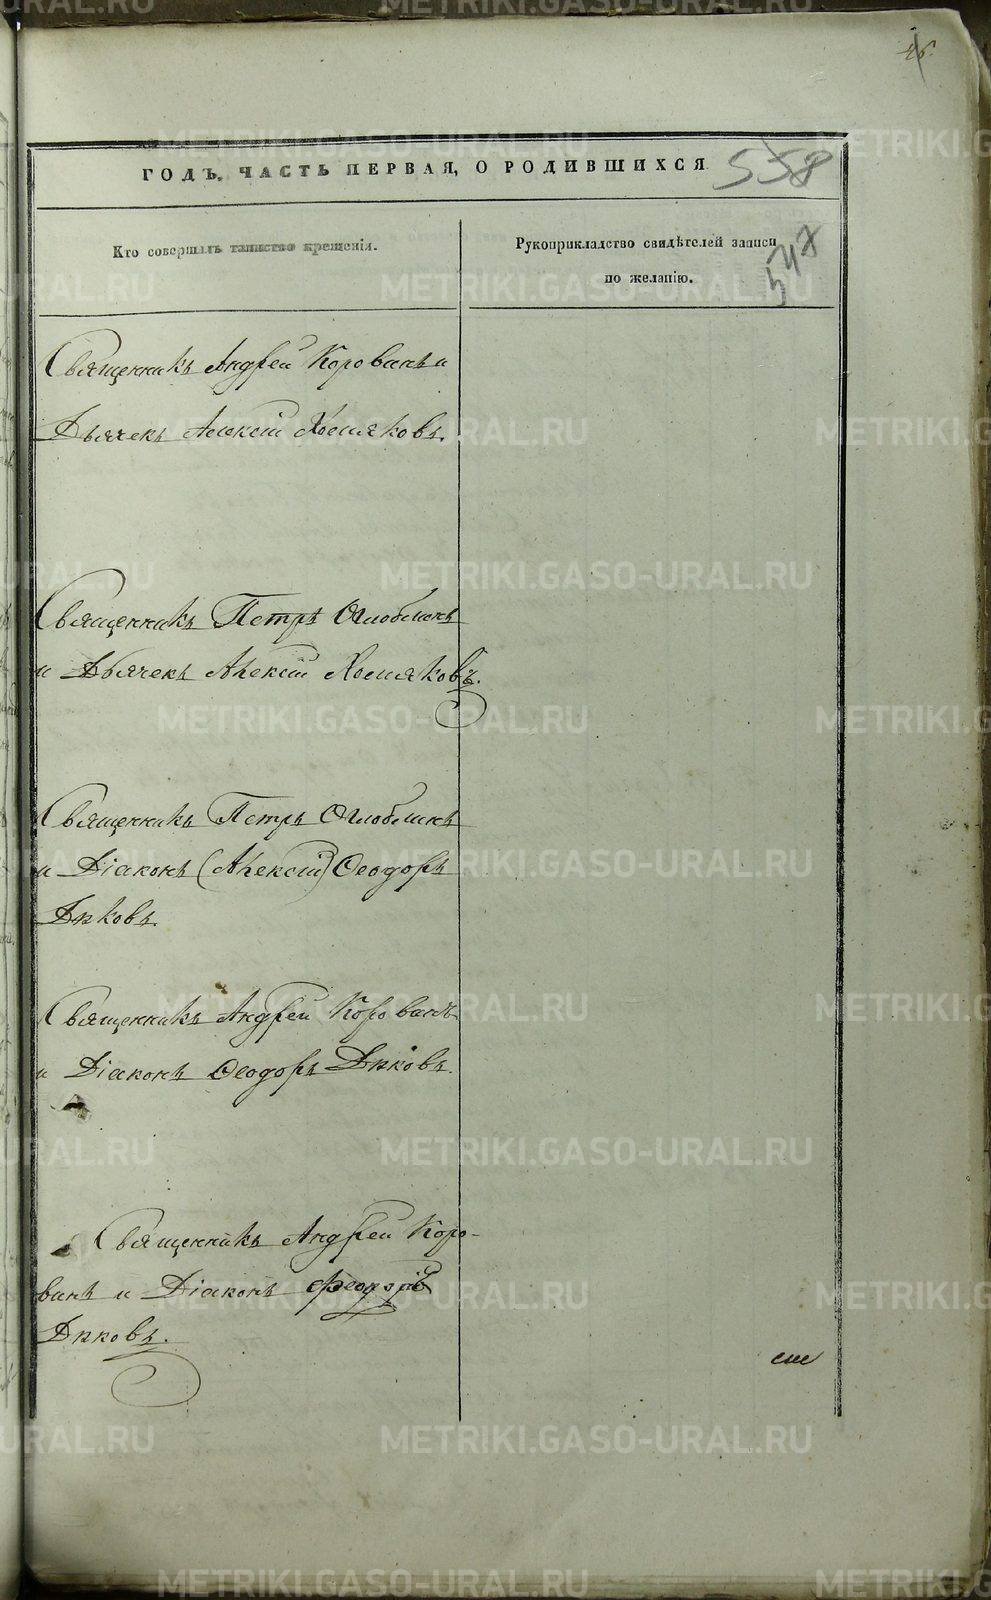 45.
ГОДЪ, ЧАСТЬ ПЕРВАЯ, О РОДИВШИХСЯ
558
Кто совершалъ таинство крещенія.
Рукоприкладство свидѣтелей записи
по желанію.
547
Священникъ Андрей Корованъ и
Дьячекъ Алексій Хомяковъ.
Священникъ Петръ Оглоблинъ
и Дьячекъ Алексій Хомяковъ.
Священникъ Петръ Оглоблинъ
и Діаконъ (Алексій) Ѳеодоръ
Дьковъ.
Священникъ Андрей Корованъ
и Діаконъ Ѳеодоръ Дьковъ.
Священникъ Андрей Коро-
ванъ и Діаконъ Феодоръ
Дьковъ.
METRIKI.GASO-URAL.RU